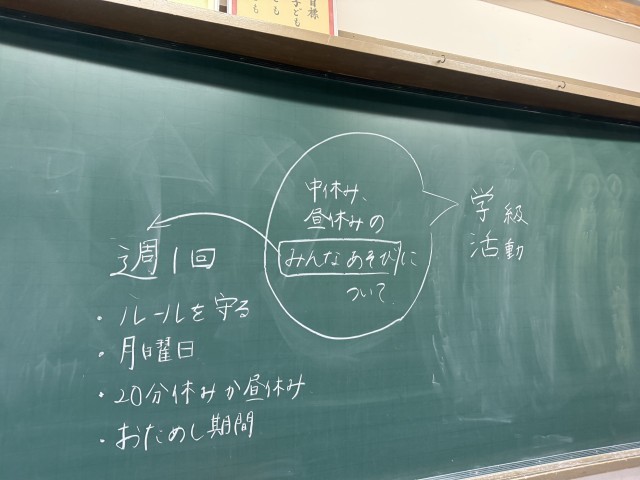 目標
子ども
学級
活動
中休み、
昼休みの
みんなあそびに
ついて
週1回
・ルールを守る
・月曜日
・20分休みか昼休み
・おためし期間